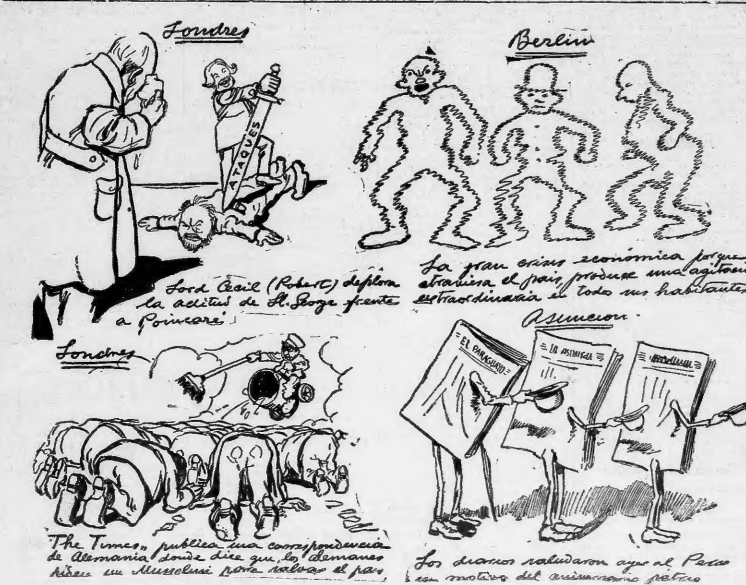 Londres
ATAQUES
Lord Cecil (Robert) deplora
la actitud de Ll. George frente
a Poincaré
Berlin
La gran crisis economica porque
atraviesa el país produce una agitacion
extraordinaria en todos sus habitantes
Londres
"The Times" publica una correspondencia
de Alemania donde dice que los alemanes
piden un Mussolini para salvar el país
Asuncion.
EL PARAGUAYO
Los diarios saludaron ayer al Peru
con motivo del aniversario patrio